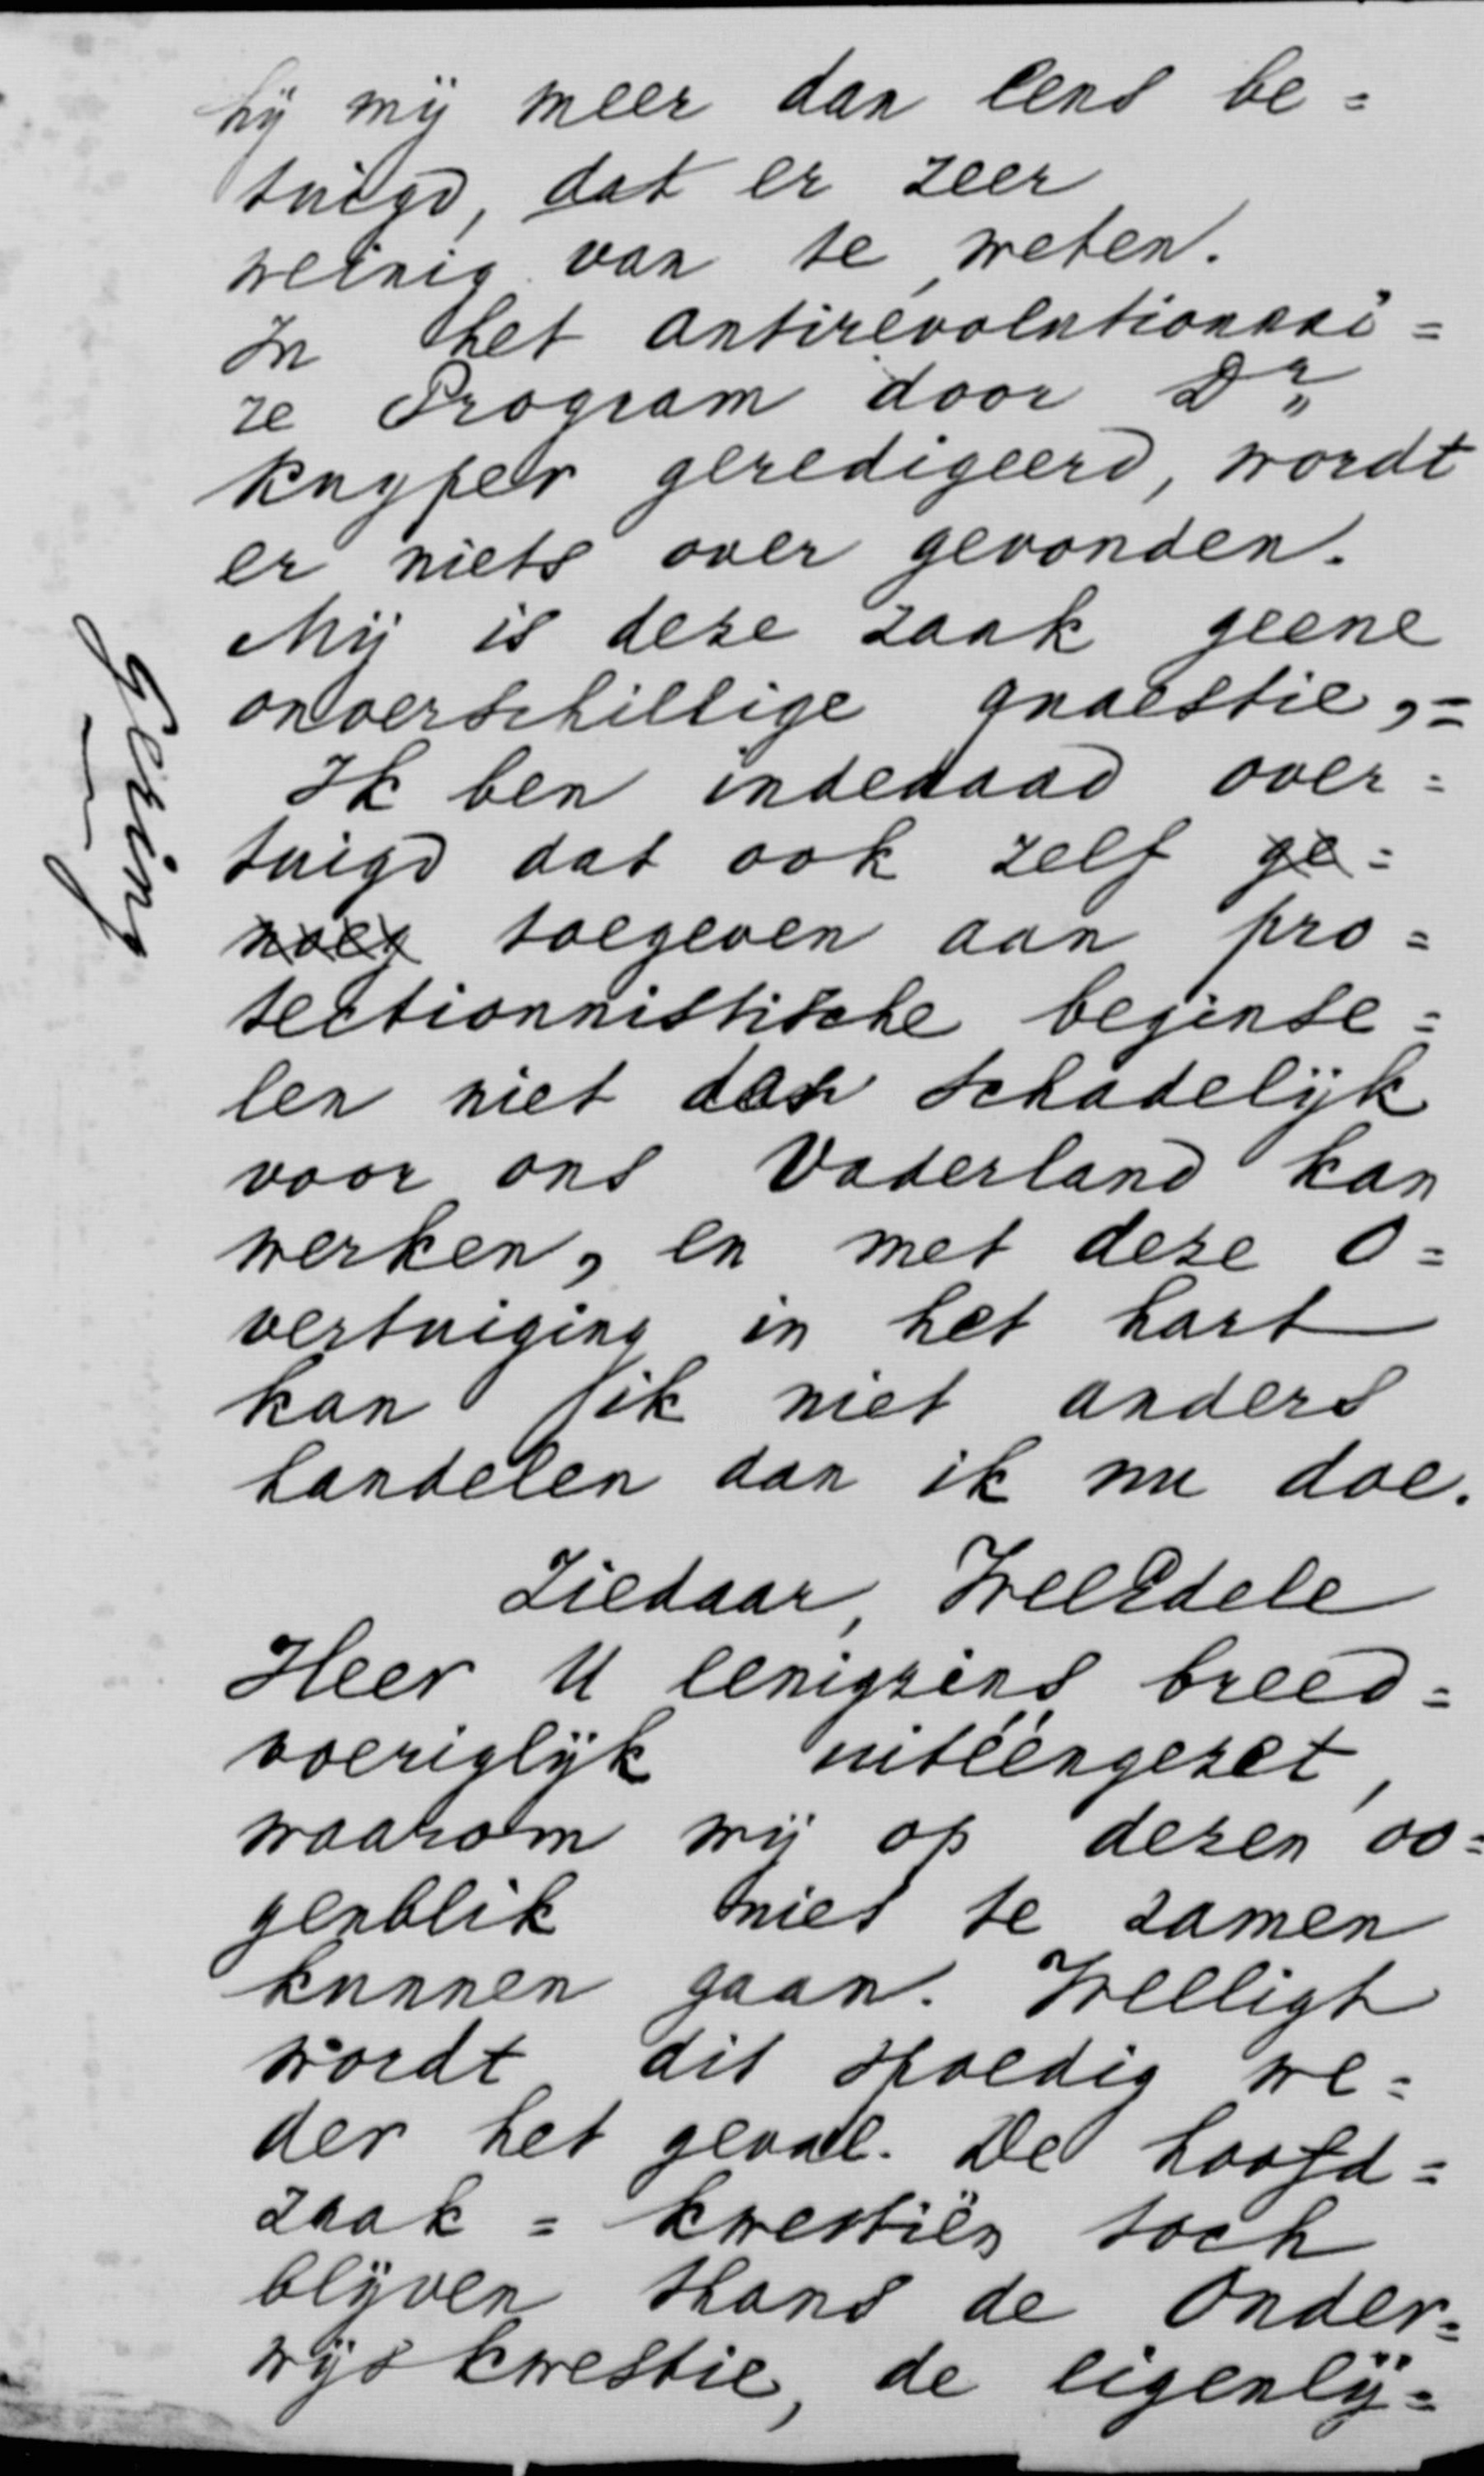 hij mij meer dan eens be=
tuigd, dat er zeer
weinig van te weten.
In het antirevolutionnai=
re Program door Dr
Kuyper geredigeerd, wordt
er niets over gevonden.
Mij is deze zaak geene
onverschillige quaestie,=
Ik ben inderdaad over=
tuigd dat ook zelf ge=
noeg toegeven aan pro=
tectionnistische beginse=
len niet dan schadelijk
voor ons Vaderland kan
werken, en met deze o=
vertuiging in het hart
kan ik niet anders
handelen dan ik nu doe.
Ziedaar, WelEdele
Heer U eenigzins breed=
voeriglijk uitééngezet,
waarom wij op dezen oo=
genblik niet te zamen
kunnen gaan. Welligt
wordt dit spoedig we=
der het geval. De hoofd=
zaak = kwestiën toch
blijven thans de Onder=
wijs kwestie, de eigenlij=
gering